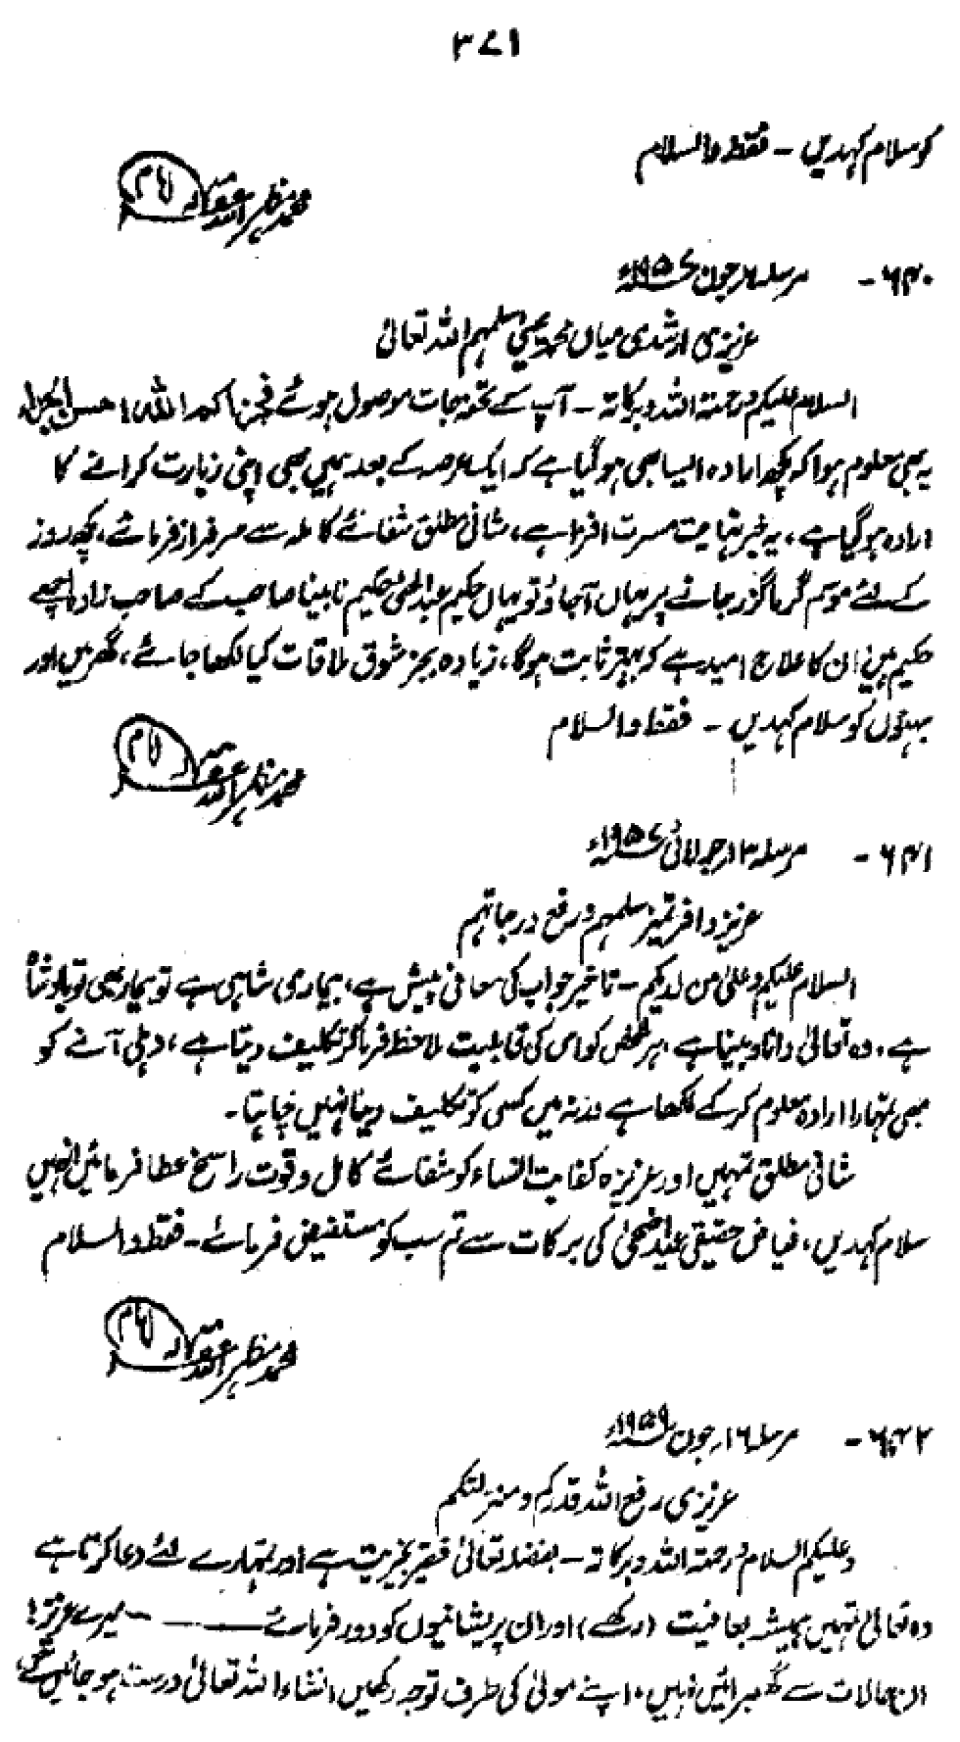 ۳۷۱
کو سلام کہدیں - فقط والسلام
محمد مظہر اللہ غفرلہ امام
۶۴۰ - مرسلہ ۶ جون ۱۹۵۷ء
عزیزی ارشدی میاں محمد یحییٰ سلمہم اللہ تعالیٰ
السلام علیکم ورحمتہ اللہ وبرکاتہ - آپ کے تحفہ جات موصول ہوئے فجزاکم اللہ احسن الجزاء
یہ بھی معلوم ہوا کہ کچھ ارادہ ایسا بھی ہوگیا ہے کہ ایک عرصہ کے بعد ہمیں بھی اپنی زیارت کرانے کا
ارادہ ہوگیا ہے، یہ خبر نہایت مسرت افزا ہے، شافی مطلق شفائے کاملہ سے سرفراز فرمائے، کچھ روز
کے لئے موسم گرما گزر جانے پر یہاں آجاؤ تو یہاں حکیم عبدالحئی حکیم نابینا صاحب کے صاحب زادہ اچھے
حکیم ہیں ان کا علاج امید ہے کہ بہتر ثابت ہوگا، زیادہ بجز شوق ملاقات کیا لکھا جائے، گھر میں اور
بہنوں کو سلام کہدیں - فقط والسلام
محمد مظہر اللہ غفرلہ امام
۶۴۱ - مرسلہ ۱۳ جولائی ۱۹۵۷ء
عزیز وافر تمیز سلمہم ورفع درجاتہم
السلام علیکم وعلیٰ من لدیکم - تاخیر جواب کی معافی پیش ہے، بیماری شاہی ہے تو بیمار بھی تو بادشاہ
ہے، وہ تعالیٰ دانا و بینا ہے ہر شخص کو اس کی قابلیت ملاحظہ فرما کر تکلیف دیتا ہے، دہلی آنے کو
بھی تمہارا ارادہ معلوم کرکے لکھا ہے ورنہ میں کسی کو تکلیف دینا نہیں چاہتا -
شافی مطلق تمہیں اور عزیزہ کفایت النساء کو شفائے کامل و قوت راسخ عطا فرمائیں انہیں
سلام کہدیں، فیاض حقیقی عید اضحیٰ کی برکات سے تم سب کو مستفیض فرمائے - فقط والسلام
محمد مظہر اللہ غفرلہ امام
۶۴۲ - مرسلہ ۱۶ جون ۱۹۵۹ء
عزیزی رفع اللہ قدرکم ومنزلتکم
وعلیکم السلام ورحمتہ اللہ وبرکاتہ - بفضلہ تعالیٰ فقیر بخیریت ہے اور تمہارے لئے دعا کرتا ہے
وہ تعالیٰ تمہیں ہمیشہ بعافیت (رکھے) اور ان پریشانیوں کو دور فرمائے ــــــ میرے عزیز!
ان حالات سے گھبرائیں نہیں، اپنے مولیٰ کی طرف توجہ رکھیں انشاء اللہ تعالیٰ درست ہوجائیں گے